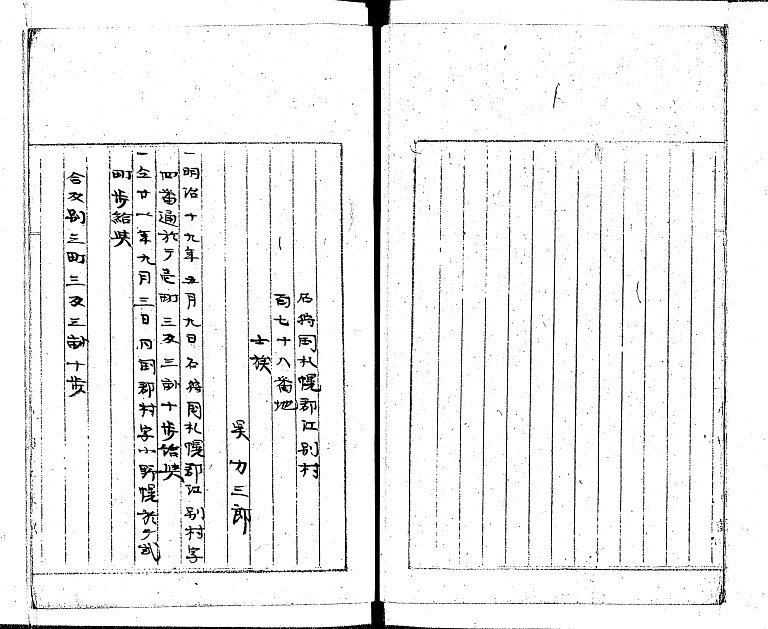 石狩国札幌郡江別村
百七十八番地
士族
呉力三郎
一明治十九年五月九日石狩国札幌郡江別村字
四番通於テ壱町三反三畝十歩給与
一仝廿一年九月三日同国郡村字小野幌於テ弐
町歩給与
合反別三町三反三畝十歩